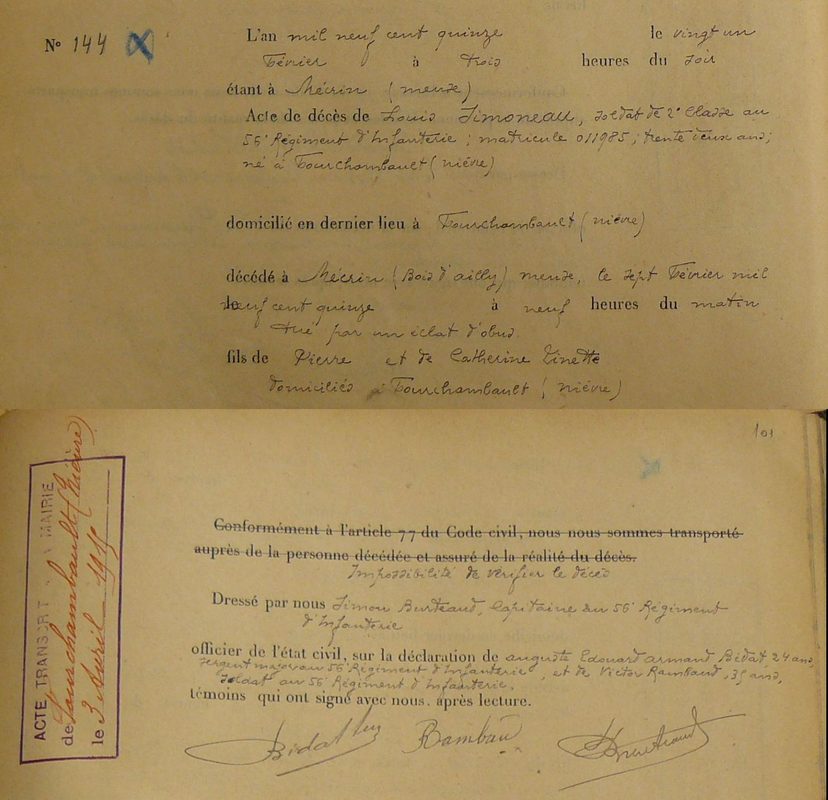 N° 144
L'an mil neuf cent quinze le vingt un
Février à trois heures du soir
étant à Mécrin (meuse)
Acte de décès de Louis Simoneau, soldat de 2e Classe au
56e Régiment d'Infanterie ; matricule 011985 ; trente deux ans ;
né à Fourchambault (nièvre)
domicilié en dernier lieu à Fourchambault (nièvre)
décédé à Mécrin (Bois d'ailly) meuse, le sept Février mil
neuf cent quinze à neuf heures du matin
tué par un éclat d'obus.
fils de Pierre et de Catherine Finette
domiciliés à Fourchambault (nièvre)
101
Conformément à l'article 77 du Code civil, nous nous sommes transporté
auprès de la personne décédée et assuré de la réalité du décès.
Impossibilité de vérifier le décès
Dressé par nous Simon Burteaud, Capitaine au 56e Régiment
d'Infanterie
officier de l'état civil, sur la déclaration de auguste Edouard armand Bidat, 24 ans,
sergent major au 56e Régiment d'Infanterie, et de Victor Rambaud, 35 ans,
soldat au 56e Régiment d'Infanterie.
témoins qui ont signé avec nous, après lecture.
Bidat Rambau
ACTE TRANSCRIT MAIRIE
de Fourchambault (Nièvre)
le 3 Avril 1915